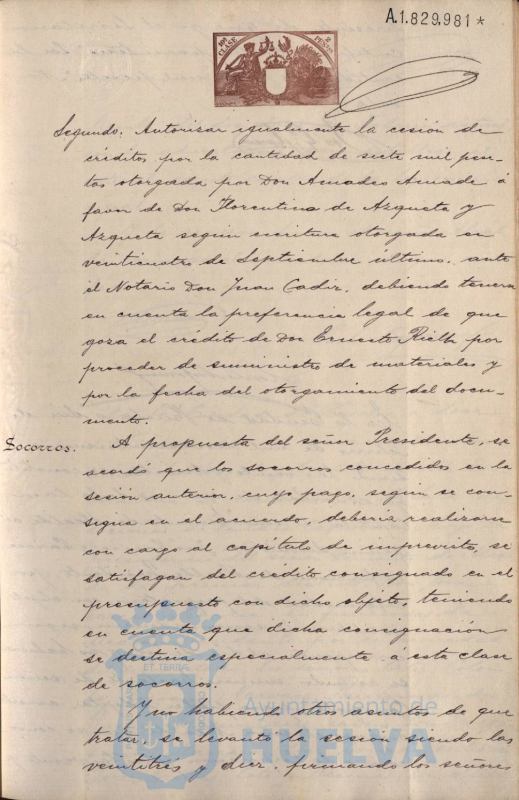 A.1.829.981*
10ª CLASE 2 PESETAS
Segundo. Autorizar igualmente la cesión de
créditos por la cantidad de siete mil pese-
tas otorgada por Don Amadeo Amade á
favor de Don Florentina de Azqueta y
Azqueta según escritura otorgada en
veinticuatro de Septiembre último, ante
el Notario Don Juan Cadiz, debiendo tenerse
en cuenta la preferencia legal de que
goza el crédito de Don Ernesto Rieth por
proceder de suministro de materiales y
por la fecha del otorgamiento del docu-
mento.
Socorros. A propuesta del señor Presidente, se
acordó que los socorros concedidos en la
sesión anterior, cuyo pago, según se con-
signa en el acuerdo, debería realizarse
con cargo al capítulo de imprevisto, se
satisfagan del crédito consignado en el
presupuesto con dicho objeto, teniendo
en cuenta que dicha consignación
se destina especialmente á esta clase
de socorros.
Y no habiendo otros asuntos de que
tratar, se levantó la sesión siendo las
veintitrés y diez, firmando los señores
ET TERRAE
Ayuntamiento de
HUELVA